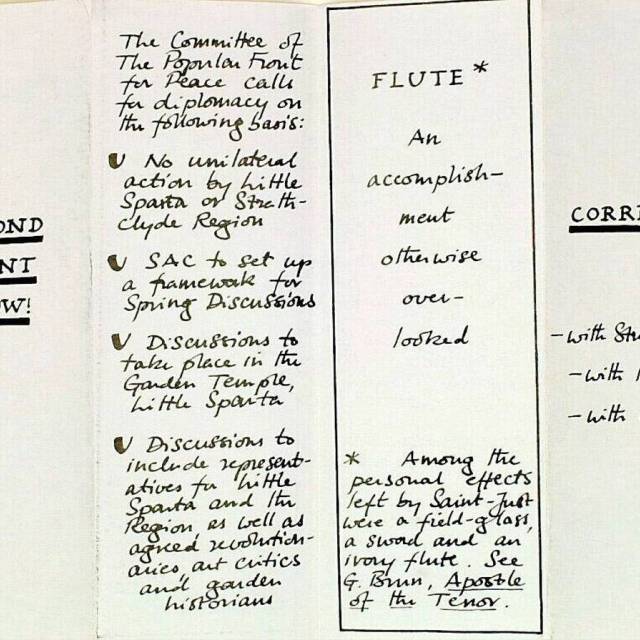 OND
NT
W!
The Committee of
The Popular Front
for Peace calls
for diplomacy on
the following basis:
No unilateral
action by Little
Sparta or Strath-
clyde Region
SAC to set up
a framework for
Spring Discussions
Discussions to
take place in the
Garden Temple,
Little Sparta
Discussions to
include represent-
atives for Little
Sparta and the
Region as well as
agreed revolution-
aries art critics
and garden
historians
FLUTE *
An
accomplish-
ment
otherwise
over-
looked
* Among the
personal effects
left by Saint-Just
were a field-glass,
a sword and an
ivory flute. See
G. Brun, Apostle
of the Terror.
CORRE
-with Str
-with
-with